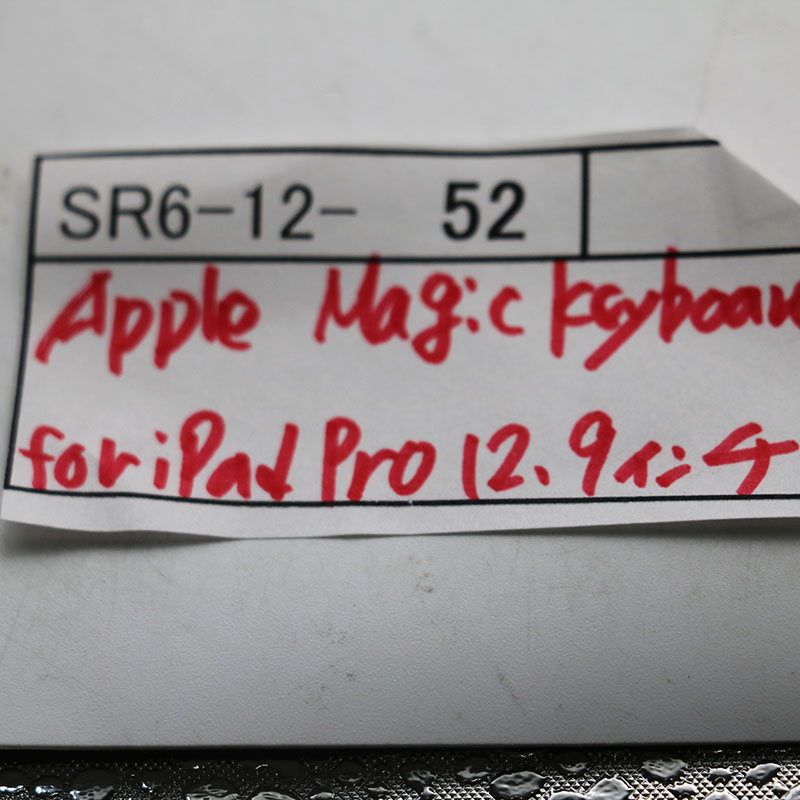 SR6-12- 52
Apple Magic Keyboar
for iPad Pro 12.9インチ